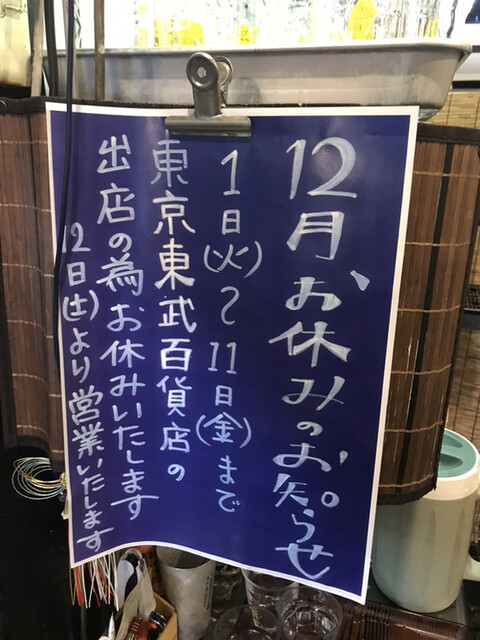 12月、お休みのお知らせ
1日(火)〜11日(金)まで
東京東武百貨店の
出店の為お休みいたします
12日(土)より営業いたします